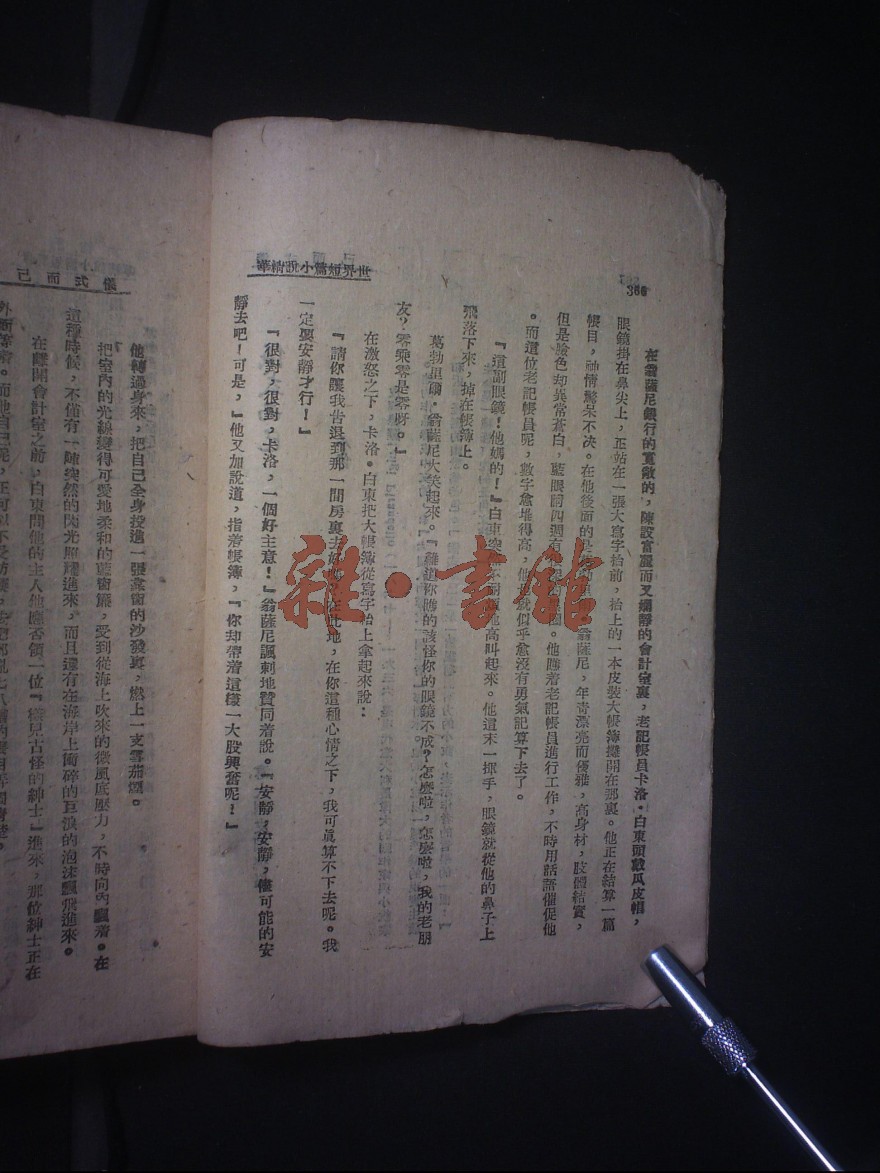 366
世界短篇小說精華
在翁薩尼銀行的寬敞的，陳設富麗而又嫻靜的會計室裏，老記帳員卡洛·白東頭戴瓜皮帽，
眼鏡掛在鼻尖上，正站在一張大寫字枱前，枱上的一本皮裝大帳簿攤開在那裏。他正在結算一篇
帳目，神情驚呆不決。在他後面的是葛勃里爾·翁薩尼，年青漂亮而優雅，高身材，肢體結實，
但是臉色却異常蒼白，藍眼睛四週有 圈。他瞧着老記帳員進行工作，不時用話語催促他
。而這位老記帳員呢，數字愈堆得高，他 就似乎愈沒有勇氣記算下去了。
『這副眼鏡！他媽的！』白東突 不耐煩地高叫起來。他這末一揮手，眼鏡就從他的鼻子上
飛落下來，掉在帳簿上。
葛勃里爾·翁薩尼大笑起來。『難道你瞧的該怪你的眼鏡不成？怎麼啦，怎麼啦，我的老朋
友？零乘零是零呀。』
在激怒之下，卡洛·白東把大帳簿從寫字枱上拿起來說：
『請你讓我告退到那一間房裏去好 在此地，在你這種心情之下，我可眞算不下去呢。我
一定要安靜才行！』
『很對，很對，卡洛，一個好主意！』翁薩尼諷刺地贊同着說。『安靜，安靜，儘可能的安
靜去吧！可是，』他又加說道，指着帳簿，『你却帶着這樣一大股興奮呢！』
儀式而已
他轉過身來，把自己全身投進一張靠窗的沙發裏，燃上一支雪茄煙。
把室內的光線變得可愛地柔和的藍窗簾，受到從海上吹來的微風底壓力，不時向內飄着。在
這種時候，不僅有一陣突然的閃光照耀進來，而且還有在海岸上衝碎的巨浪的泡沫飄飛進來。
在離開會計室之前，白東問他的主人他應否領一位『希見古怪的紳士』進來，那位紳士正在
外面等着。而他自己呢，
雜·書館